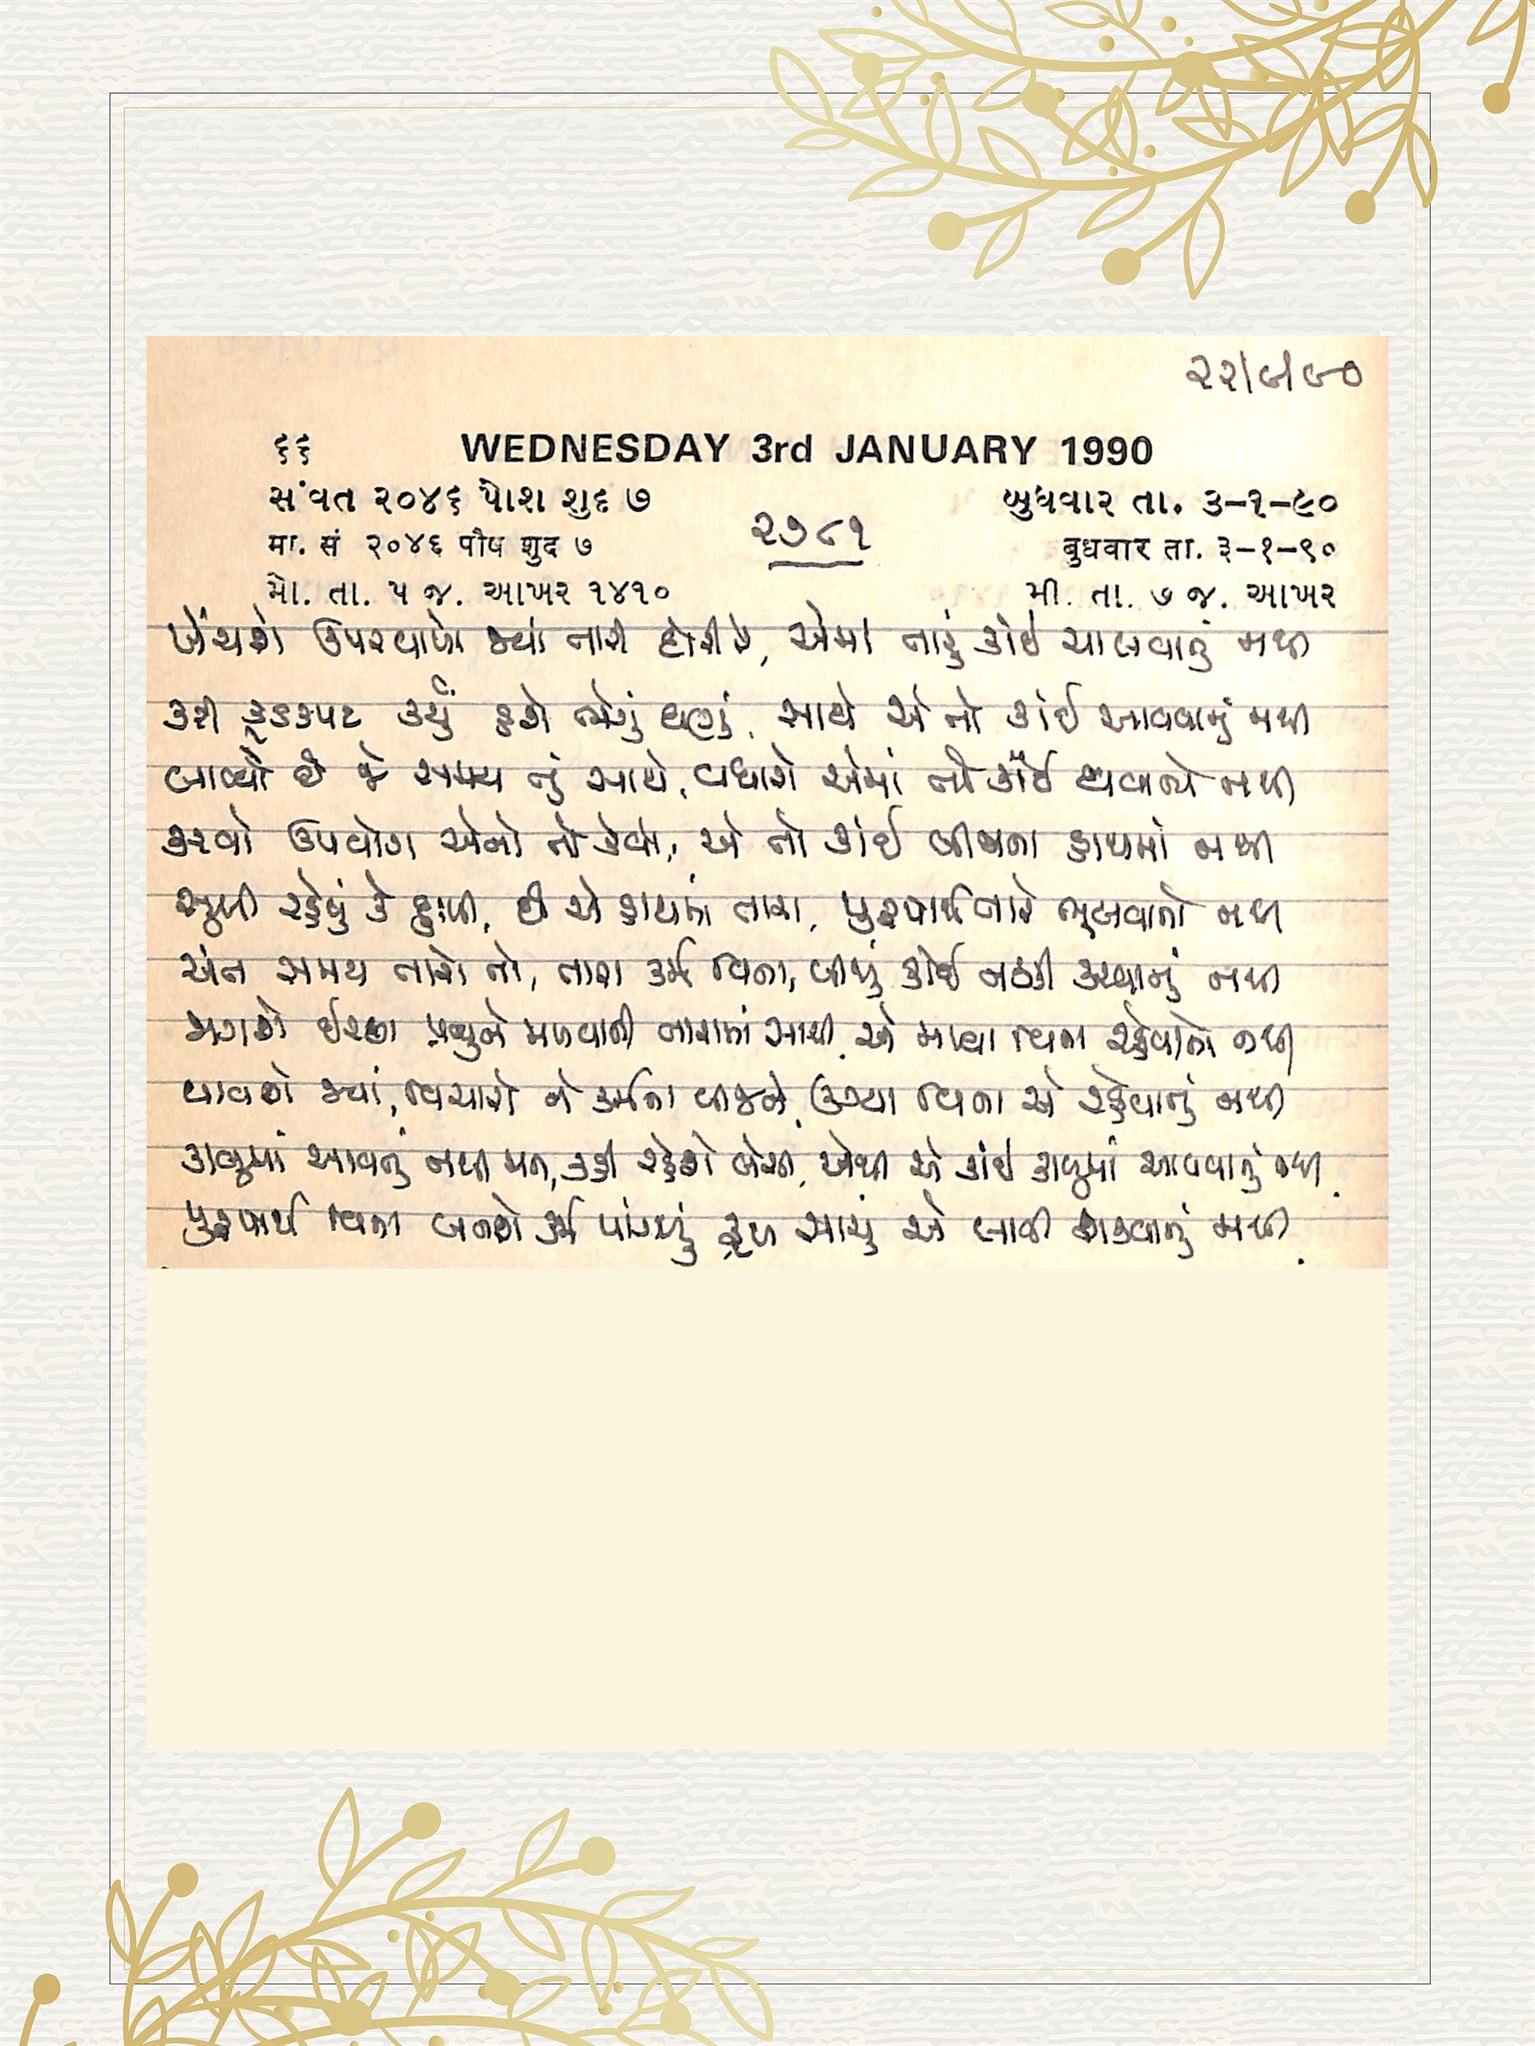 ૨૨/૯/૯૦
૬૬ WEDNESDAY 3rd JANUARY 1990
સંવત ૨૦૪૬ પોશ શુદ ૭ બુધવાર તા. ૩-૧-૯૦
૨૭૮૧
मा. सं २०४६ पौष शुद ७ बुधवार ता. ३-१-९०
મો. તા. ૫ જ. આખર ૧૪૧૦ મી. તા. ૭ જ. આખર
ખેંચશે ઉપરવાળો જ્યાં તારી દોરી રે, એમાં તારું કોઈ ચાલવાનું નથી
કરી કૂડકપટ કર્યું હશે ભેગું ઘણું, સાથે એ તો કાંઈ આવવાનું નથી
લાવ્યો છે જે સમય તું સાથે, વધારો એમાં તો કાંઈ થવાનો નથી
કરવો ઉપયોગ એનો તો કેવો, એ તો કાંઈ બીજાના હાથમાં નથી
સુખી રહેવું કે દુઃખી, છે એ હાથમાં તારા, પુરુષાર્થ તારે ભૂલવાનો નથી
અંત સમય તારો તો, તારા કર્મ વિના, બીજું કોઈ નક્કી કરવાનું નથી
જાગશે ઈચ્છા પ્રભુને મળવાની તારામાં સાચી, એ મળ્યા વિના રહેવાનો નથી
વાવશે જ્યાં, વિચારો ને કર્મના બીજને, ઉગ્યા વિના એ રહેવાનું નથી
કાબૂમાં આવતું નથી મન, કહી રહેશો બેસી, એથી એ કાંઈ કાબૂમાં આવવાનું નથી
પુરુષાર્થ વિના બનશે કર્મ પાંગળું, ફળ સાચું એ લાવી શકવાનું નથી